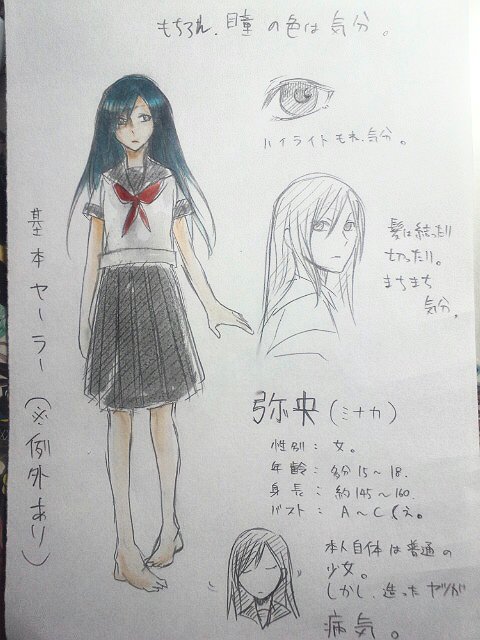 もちろん、瞳の色は気分。
ハイライトもネ、気分。
髪は結ったり
切ったり。
まちまち
気分。
基本セーラー(※例外あり)
弥央(ミナカ)
性別:女。
年齢:多分15~18.
身長:約145~160.
バスト:A~Cくらい。
本人自体は普通の
少女。
しかし、造ったヤツが
病気。